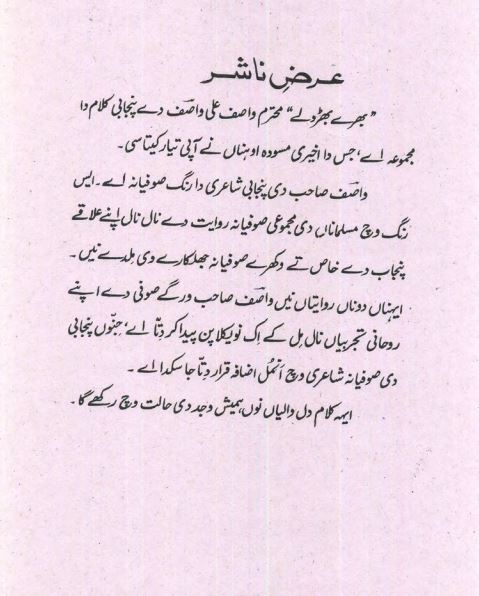 عرضِ ناشر
”بھرے بھڑولے“ محترم واصف علی واصفؔ دے پنجابی کلام دا
مجموعہ اے، جس دا اخیری مسودہ اوہناں نے آپی تیار کیتا سی۔
واصفؔ صاحب دی پنجابی شاعری دا رنگ صوفیانہ اے۔ ایس
رنگ وچ مسلماناں دی مجموعی صوفیانہ روایت دے نال نال اپنے علاقے
پنجاب دے خاص تے وکھرے صوفیانہ جھلکارے وی مِلدے نیں۔
ایہناں دوناں روایتاں نیں واصفؔ صاحب ورگے صوفی دے اپنے
روحانی تجربیاں نال مِل کے اِک نویکلا پن پیدا کر دِتّا اے، جِنّوں پنجابی
دی صوفیانہ شاعری وچ اَنمُل اضافہ قرار دِتّا جا سکدا اے۔
ایہہ کلام دل والیاں نوں ہمیش وجد دی حالت وچ رکھے گا۔